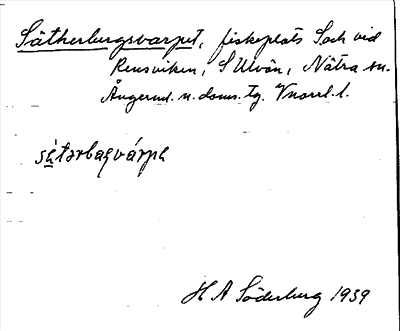 Sätherbergsvarpet, fiskeplats S och vid
Rensviken, S Ulvön, Nätra sn.
Ångerml. n. doms. tg. Vnorrl. l.
sätərbaqvárpə
H A Söderberg 1939